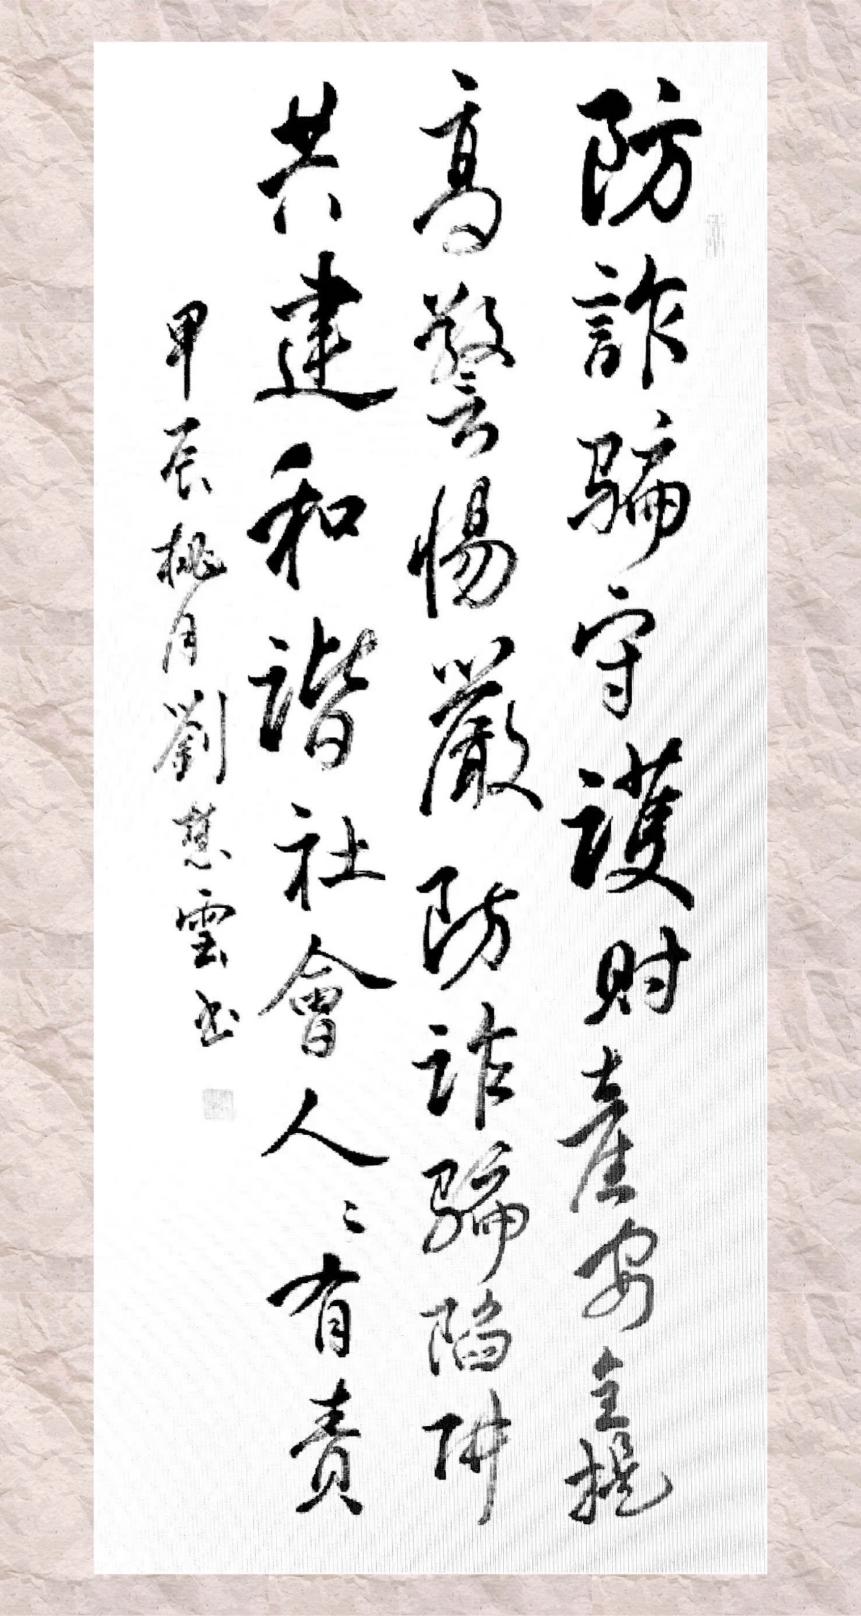 防詐騙守護財產安全提
高警惕嚴防詐騙陷阱
共建和諧社會人〻有責
甲辰桃月劉慧雲书